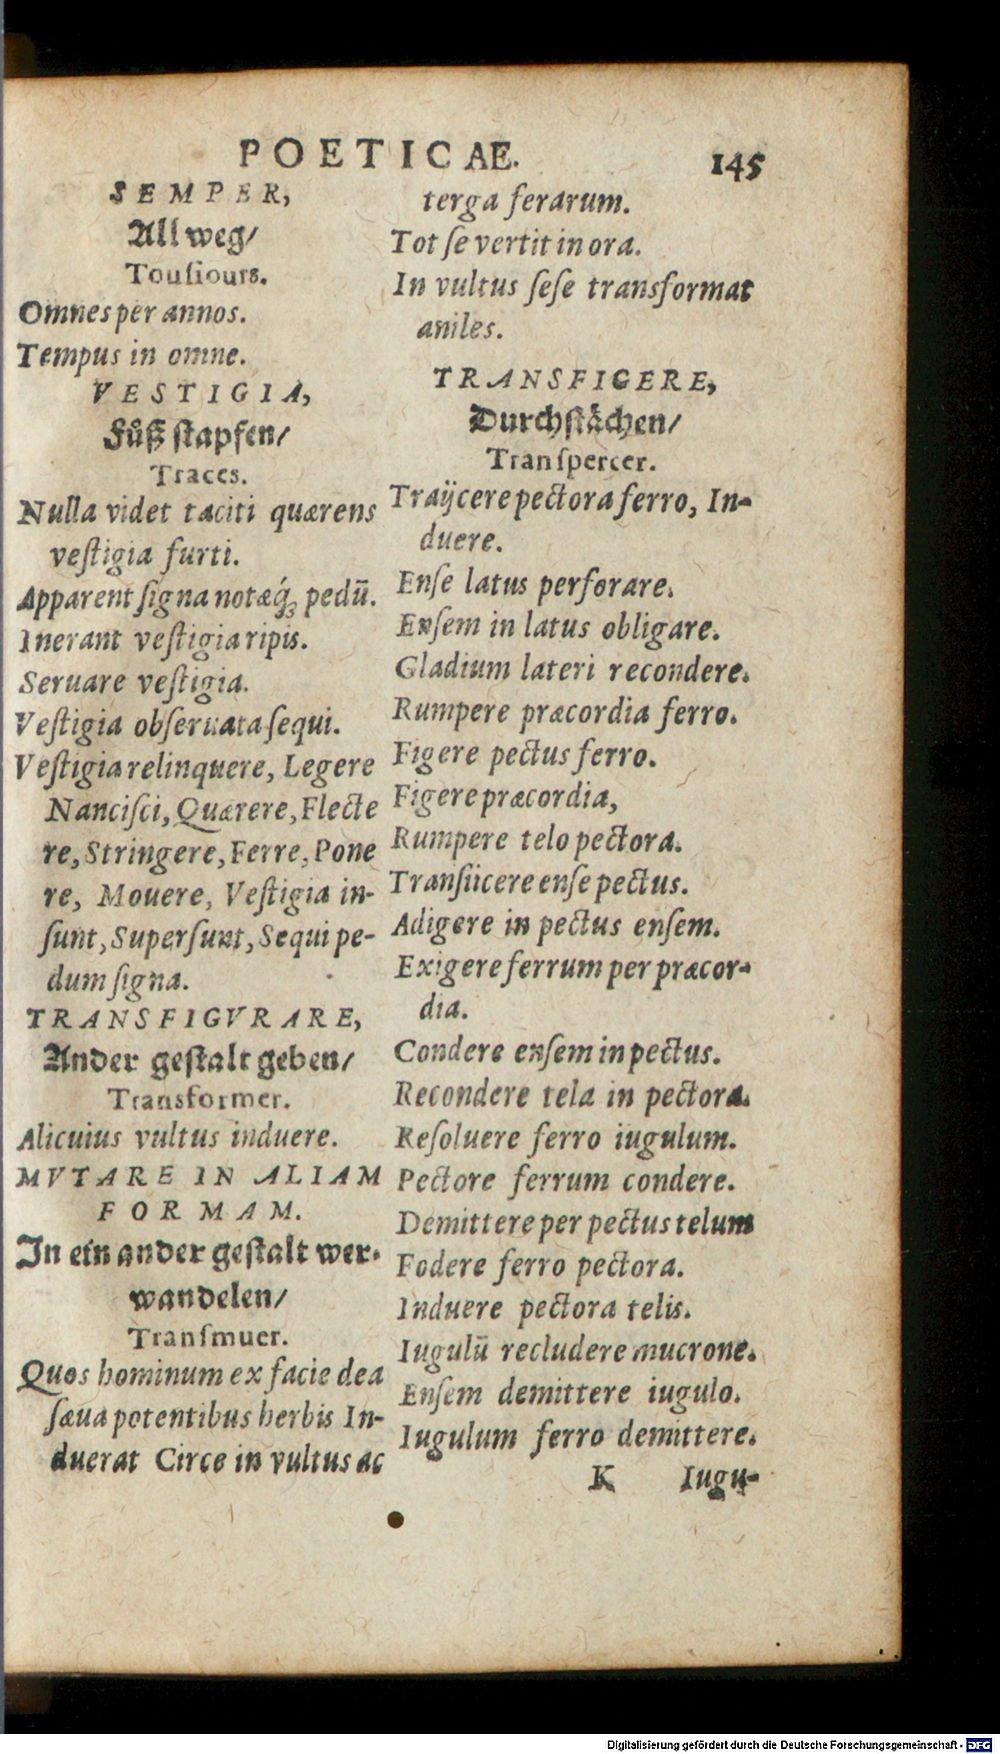 POETICAE.
145
SEMPER,
All weg/
Tousiours.
Omnes per annos.
Tempus in omne.
VESTIGIA,
Fůß stapfen/
Traces.
Nulla videt taciti quærens
vestigia furti.
Apparent signa notæq́ꝫ pedū.
Inerant vestigia ripis.
Seruare vestigia.
Vestigia obseruata sequi.
Vestigia relinquere, Legere
Nancisci, Quærere, Flecte
re, Stringere, Ferre, Pone
re, Mouere, Vestigia in-
sunt, Supersunt, Sequi pe-
dum signa.
TRANSFIGVRARE,
Ander gestalt geben/
Transformer.
Alicuius vultus induere.
MVTARE IN ALIAM
FORMAM.
In ein ander gestalt wer-
wandelen/
Transmuer.
Quos hominum ex facie dea
sæua potentibus herbis In-
duerat Circe in vultus ac
terga ferarum.
Tot se vertit in ora.
In vultus sese transformat
aniles.
TRANSFIGERE,
Durchstächen/
Transpercer.
Traÿcere pectora ferro, In-
duere.
Ense latus perforare.
Ensem in latus obligare.
Gladium lateri recondere.
Rumpere præcordia ferro.
Figere pectus ferro.
Figere præcordia,
Rumpere telo pectora.
Transiicere ense pectus.
Adigere in pectus ensem.
Exigere ferrum per præcor-
dia.
Condere ensem in pectus.
Recondere tela in pectora.
Resoluere ferro iugulum.
Pectore ferrum condere.
Demittere per pectus telum
Fodere ferro pectora.
Induere pectora telis.
Iugulū recludere mucrone.
Ensem demittere iugulo.
Iugulum ferro demittere.
K Iugu-
Digitalisierung gefördert durch die Deutsche Forschungsgemeinschaft - DFG